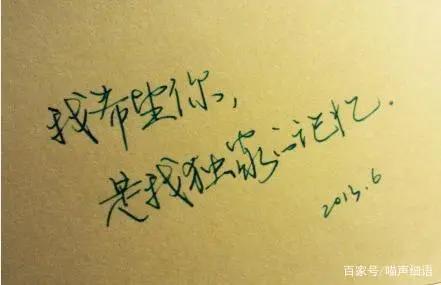 我希望你，
是我独家的记忆.
2013.6
百家号/喵声细语